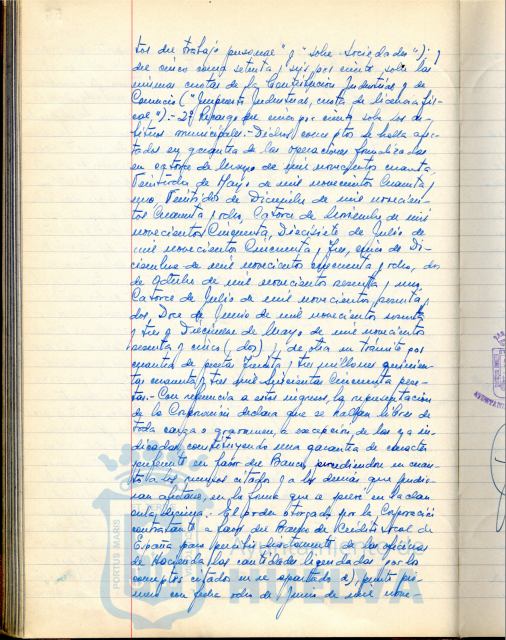 tos del trabajo personal" y "sobre Sociedades"); y
del cinco coma setenta y seis por ciento, sobre las
mismas cuotas de la Contribución Industrial y de
Comercio ("Impuesto Industrial, cuota de licencia fis-
cal").- 2º Recargo del cinco por ciento sobre los ar-
bitrios municipales.- Dichos conceptos se hallan afec-
tados en garantía de las operaciones formalizadas
en catorce de Mayo de mil novecientos cuarenta,
Veintiocho de Mayo de mil novecientos Cuarenta y
uno, Veintidos de Diciembre de mil novecien-
tos Cuarenta y ocho, Catorce de Noviembre de mil
novecientos Cincuenta, Diecisiete de Julio de
mil novecientos Cincuenta y Tres, cinco de Di-
ciembre de mil novecientos cincuenta y ocho, dos
de Octubre de mil novecientos sesenta y uno,
Catorce de Julio de mil novecientos sesenta y
dos, Doce de Junio de mil novecientos sesenta
y tres y Diecinueve de Mayo de mil novecientos
sesenta y cinco (dos) y de otra en trámite por
cuantía de pesetas Treinta y tres millones quinien-
tas cuarenta y tres mil seiscientas Cincuenta pese-
tas.- Con referencia a estos ingresos, la representación
de la Corporación declara que se hallan libres de
toda carga o gravamen, a excepción de las ya in-
dicadas, constituyendo una garantía de carácter
preferente en favor del Banco, procediéndose en cuan-
to a los recursos citados y a los demás que pudie-
ran afectarse en la forma que se prevé en la cláu-
sula décima.- El poder otorgado por la Corporación
contratante a favor del Banco de Crédito Local de
España para percibir directamente de las oficinas
de Hacienda las cantidades liquidadas por los
conceptos citados en el apartado a), punto pri-
mero con fecha ocho de Junio de mil nove-
PORTUS MARIS
HUELVA